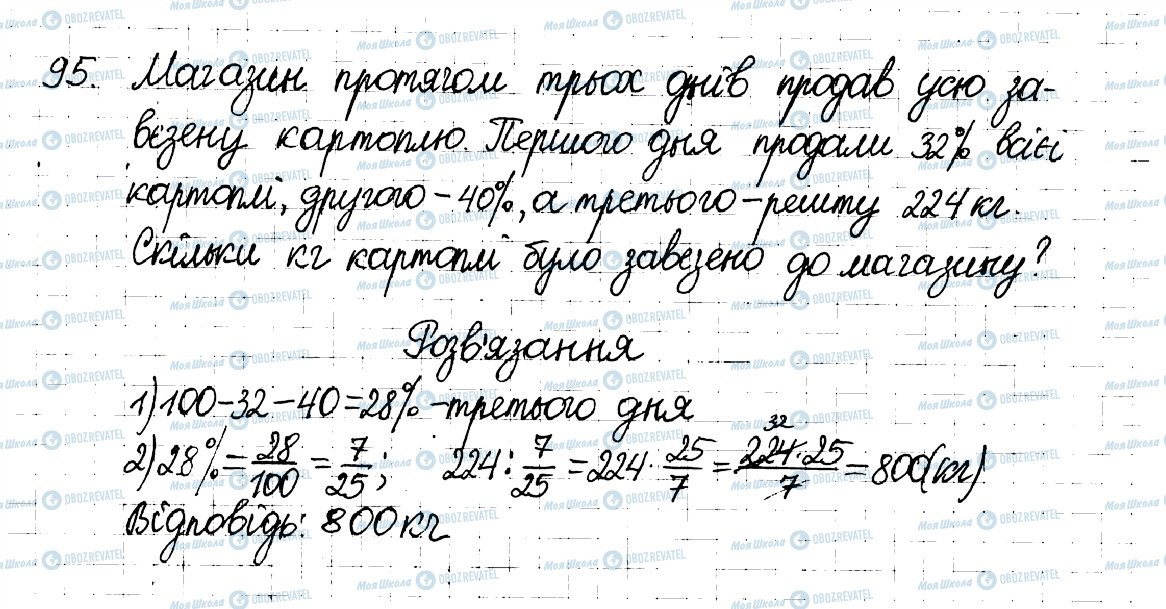 95. Магазин протягом трьох днів продав усю за-
везену картоплю. Першого дня продали 32% всієї
картоплі, другого – 40%, а третього – решту 224 кг.
Скільки кг картоплі було завезено до магазину?
Розв'язання
1) 100 – 32 – 40 = 28% – третього дня
2) 28% = 28/100 = 7/25; 224 : 7/25 = 224 · 25/7 = 224 · 25/7 = 800 (кг)
32
Відповідь: 800 кг
Моя Школа OBOZREVATEL